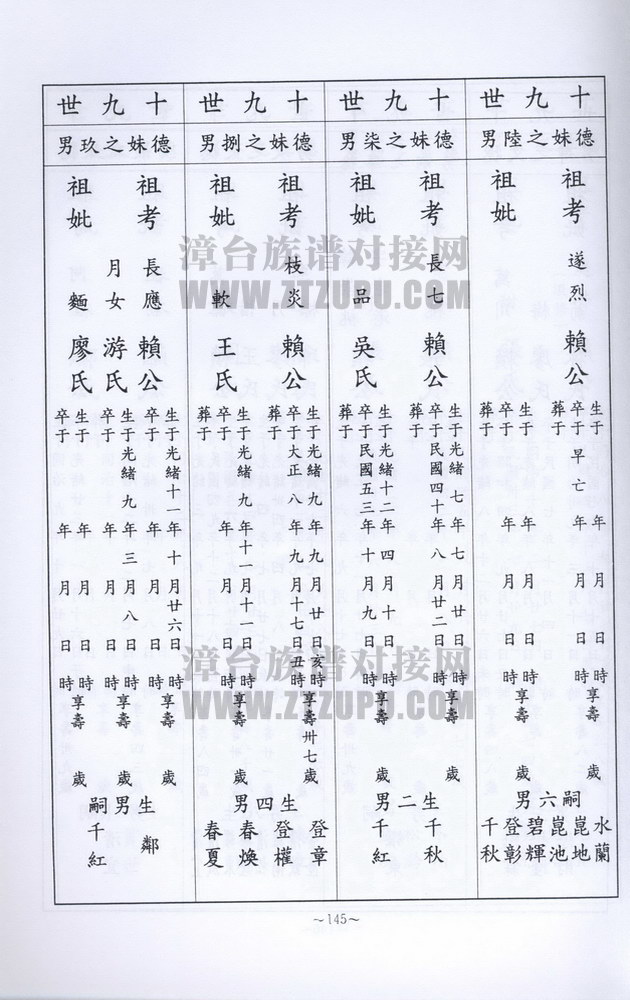 十九世
德妹之陸男
祖考 遂烈 賴公
生于 年 月 日 時享壽 歲
卒于早亡 年 月 日 時
葬于
祖妣
生于 年 月 日 時享壽 歲
卒于 年 月 日 時
葬于
嗣六男
水蘭
崑地
崑池
碧輝
登彰
千秋
十九世
德妹之柒男
祖考 長七 賴公
生于光緒七年七月廿日 時享壽 歲
卒于民國四十年八月廿二日 時
葬于
祖妣 品 吳氏
生于光緒十二年四月十日 時享壽 歲
卒于民國五三年十月九日 時
葬于
生二男
千秋
千紅
十九世
德妹之捌男
祖考 枝炎 賴公
生于光緒九年九月廿日亥時享壽卅七歲
卒于大正八年九月十七日丑時
葬于
祖妣 軟 王氏
生于光緒九年十一月十一日 時享壽 歲
卒于 年 月 日 時
葬于
生四男
登章
登權
春煥
春夏
十九世
德妹之玖男
祖考 長應 賴公
生于光緒十一年十月廿六日 時享壽 歲
卒于 年 月 日 時
祖妣 月女 游氏
生于光緒九年三月八日 時享壽 歲
卒于 年 月 日 時
麵 廖氏
生于 年 月 日 時享壽 歲
卒于 年 月 日 時
生男 鄰
嗣 千紅
～145～
漳台族谱对接网
WWW.ZTZUPU.COM
漳台族谱对接网
WWW.ZTZUPU.COM